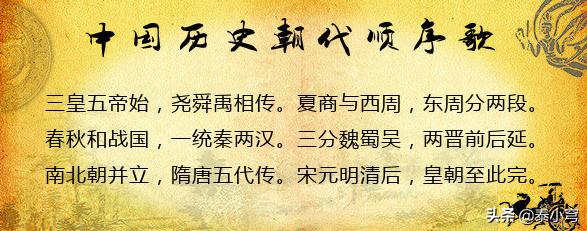 中国历史朝代顺序歌
三皇五帝始，尧舜禹相传。夏商与西周，东周分两段。
春秋和战国，一统秦两汉。三分魏蜀吴，两晋前后延。
南北朝并立，隋唐五代传。宋元明清后，皇朝至此完。
头条 @泰小穹